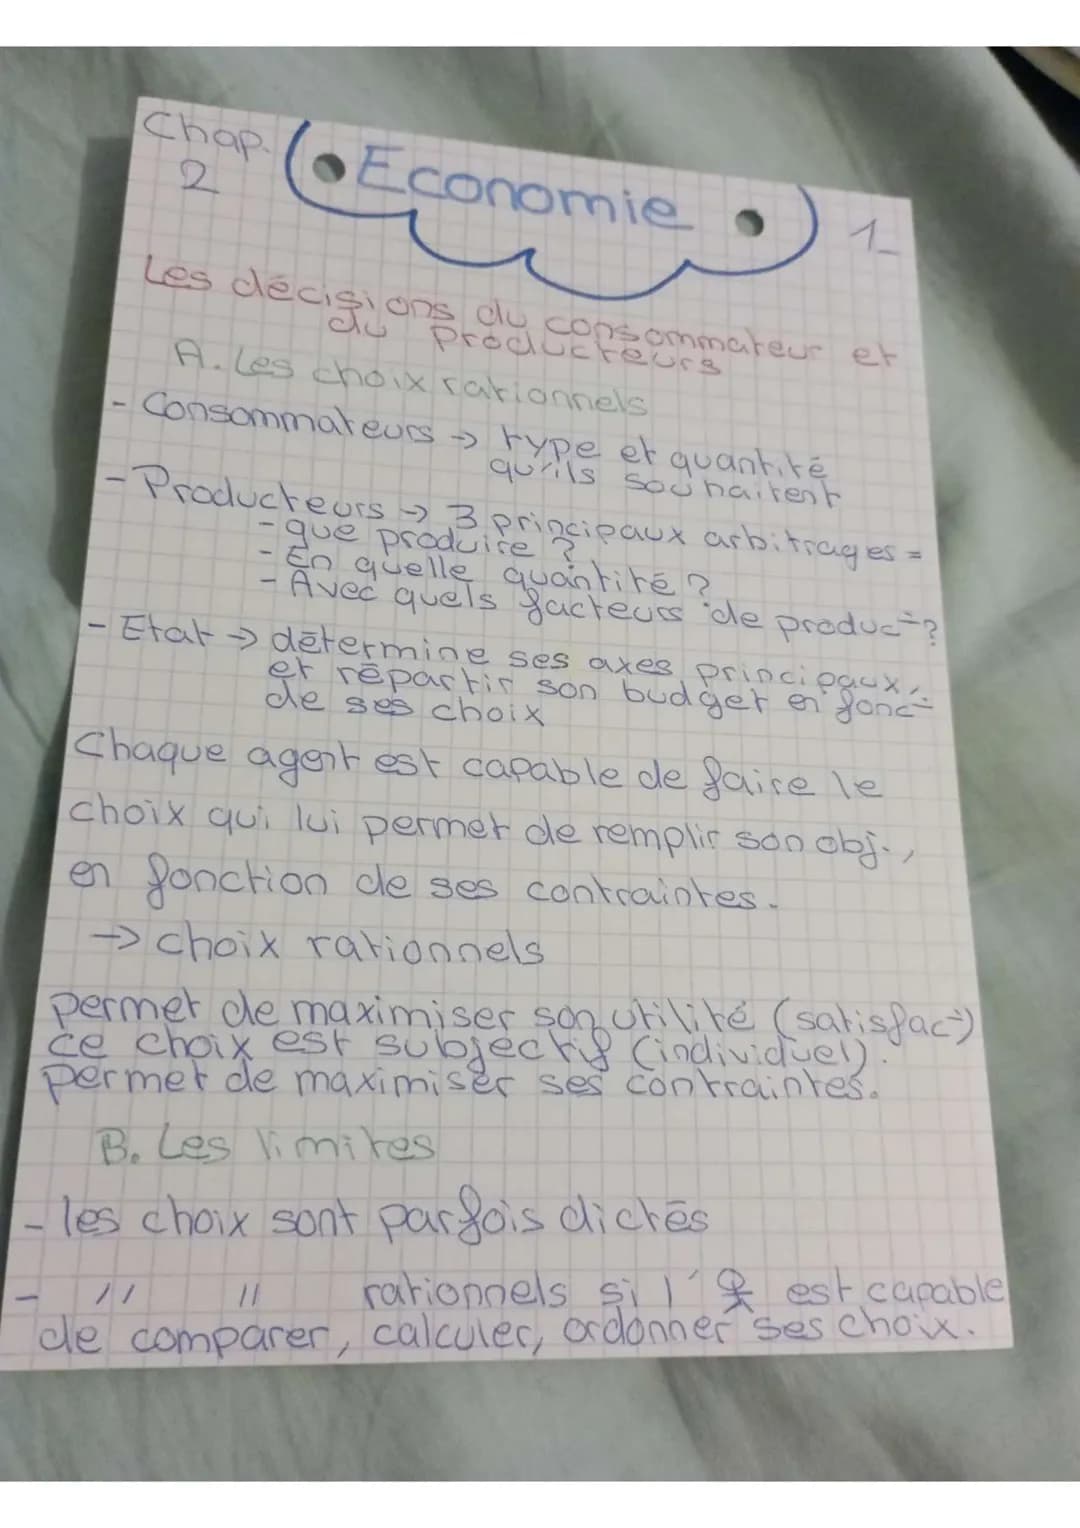 Chap. 2
Economie
1
Les décisions du consommateur et
du producteurs
A. Les choix rationnels
- Consommateurs → type et quantité
qu'ils souhaitent
- Producteurs → 3 principaux arbitrages =
- que produire ?
- En quelle quantité ?
- Avec quels facteurs de produc° ?
- Etat → détermine ses axes principaux,
et répartir son budget en fonc°
de ses choix
Chaque agent est capable de faire le
choix qui lui permet de remplir son obj.,
en fonction de ses contraintes.
→ choix rationnels
permet de maximiser son utilité (satisfac°)
ce choix est subjectif (individuel).
permet de maximiser ses contraintes.
B. Les limites
- les choix sont parfois dictés
- " " rationnels si l' est capable
de comparer, calculer, ordonner ses choix.